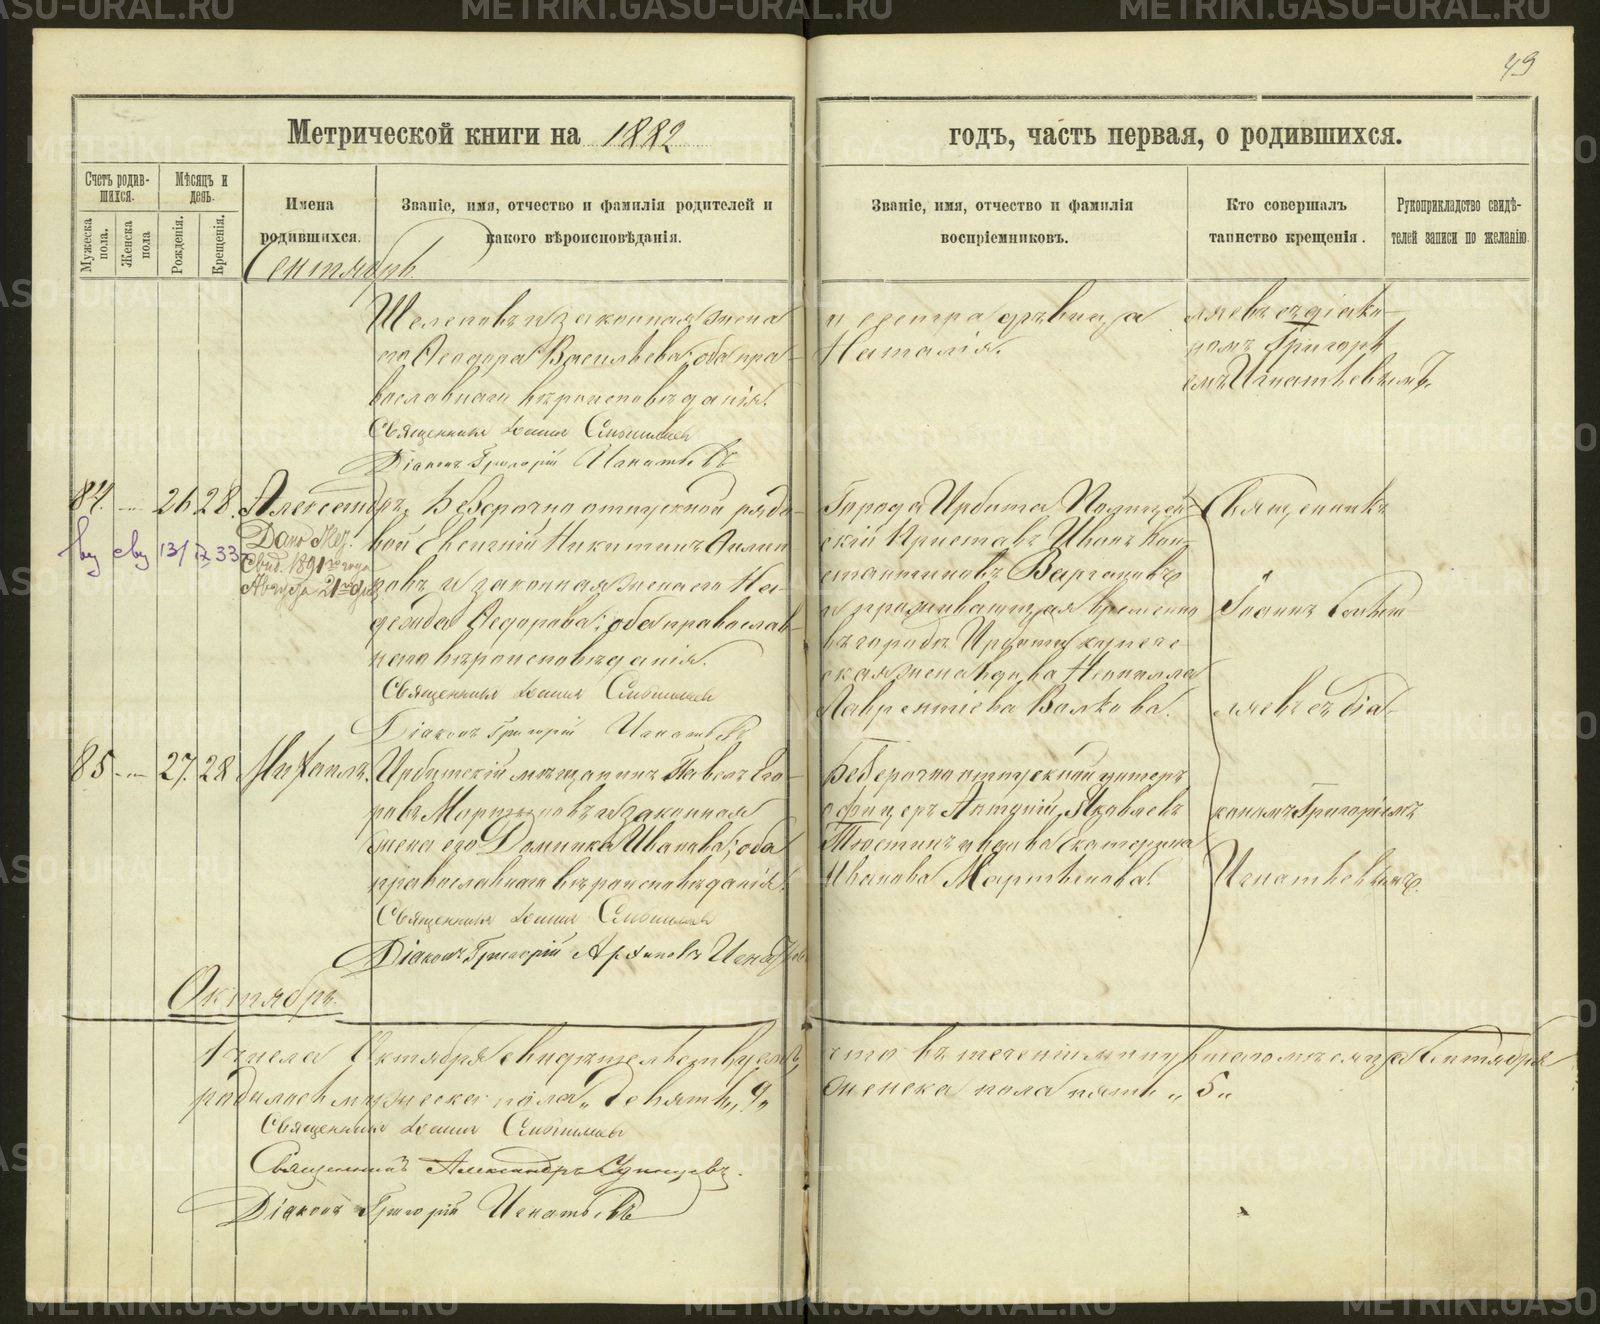 49
Метрической книги на 1882 годъ, часть первая, о родившихся.
Счетъ родив-
шихся.
Мужеска пола.
Женска пола
Мѣсяцъ и
день.
Рожденія.
Крещенія.
Имена
родившихся.
Званіе, имя, отчество и фамилія родителей и
какого вѣроисповѣданія.
Званіе, имя, отчество и фамилія
воспріемниковъ.
Кто совершалъ
таинство крещенія.
Рукоприкладство свидѣ-
телей записи по желанію.
Сентябрь
и законная жена
его Ѳеодора Васильева; оба пра-
вославнаго вѣроисповѣданія.
Священникъ Іоаннъ
Діаконъ Григорій Игнатьевъ
и сестра дѣвица
Наталія.
ляевъ съ діако-
номъ Григорі
емъ Игнатьевымъ.
84. — 26 28. Александръ.
Дано Мет.
Свид. 1891го года
Августа 21го дня
Безсрочно отпускной рядо-
вой Евгеній Никитинъ
и законная жена его На-
дежда Ѳедорова; оба православ-
наго вѣроисповѣданія.
Священникъ Іоаннъ
Діаконъ Григорій Игнатьевъ
Города Ирбита Полицей-
скій Приставъ Иванъ Кон-
стантиновъ
и проживающая временно
въ городѣ Ирбитѣ купече-
ская жена вдова
Лаврентіева Волкова.
Священникъ
Іоаннъ
ляевъ съ діа-
кономъ Григоріемъ
Игнатьевымъ.
85. — 27. 28 Михаилъ.
Ирбитскій мѣщанинъ Павелъ Его-
ровъ Мартьяновъ и законная
жена его Домника Иванова; оба
православнаго вѣроисповѣданія.
Священникъ Іоаннъ
Діаконъ Григорій Архиповъ
Безсрочно отпускной унтеръ
офицеръ Антоній Яковлевъ
и вдова Екатерина
Иванова Мартьянова.
Октябрь.
1 числа Октября свидѣтельствуемъ, что въ теченіи минувшаго мѣсяца Сентября
родилось мужеска пола „девять„ 9„ женска пола пять „5„
Священникъ Іоаннъ
Священникъ Александръ
Діаконъ Григорій Игнатьевъ
METRIKI.GASO-URAL.RU